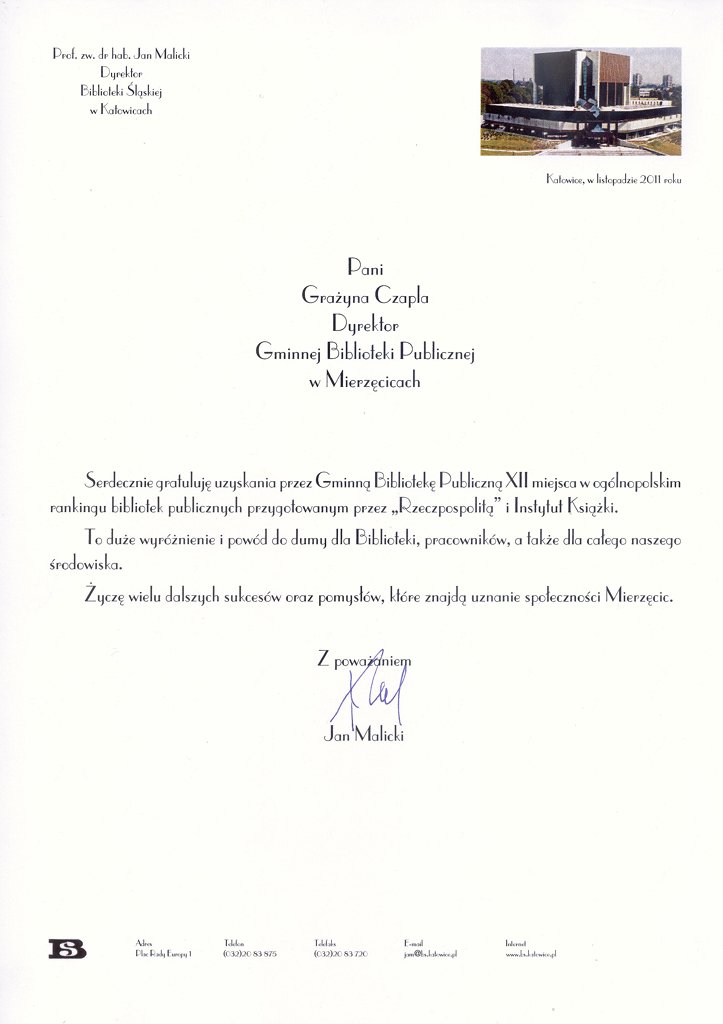 Prof. zw. dr hab. Jan Malicki
Dyrektor
Biblioteki Śląskiej
w Katowicach
Katowice, w listopadzie 2011 roku
Pani
Grażyna Czapla
Dyrektor
Gminnej Biblioteki Publicznej
w Mierzęcicach
Serdecznie gratuluję uzyskania przez Gminną Bibliotekę Publiczną XII miejsca w ogólnopolskim
rankingu bibliotek publicznych przygotowanym przez „Rzeczpospolitą” i Instytut Książki.
To duże wyróżnienie i powód do dumy dla Biblioteki, pracowników, a także dla całego naszego
środowiska.
Życzę wielu dalszych sukcesów oraz pomysłów, które znajdą uznanie społeczności Mierzęcic.
Z poważaniem
Jan Malicki
BS
Adres
Plac Rady Europy 1
Telefon
(032)20 83 875
Telefaks
(032)20 83 720
E-mail
jam@bs.katowice.pl
Internet
www.bs.katowice.pl